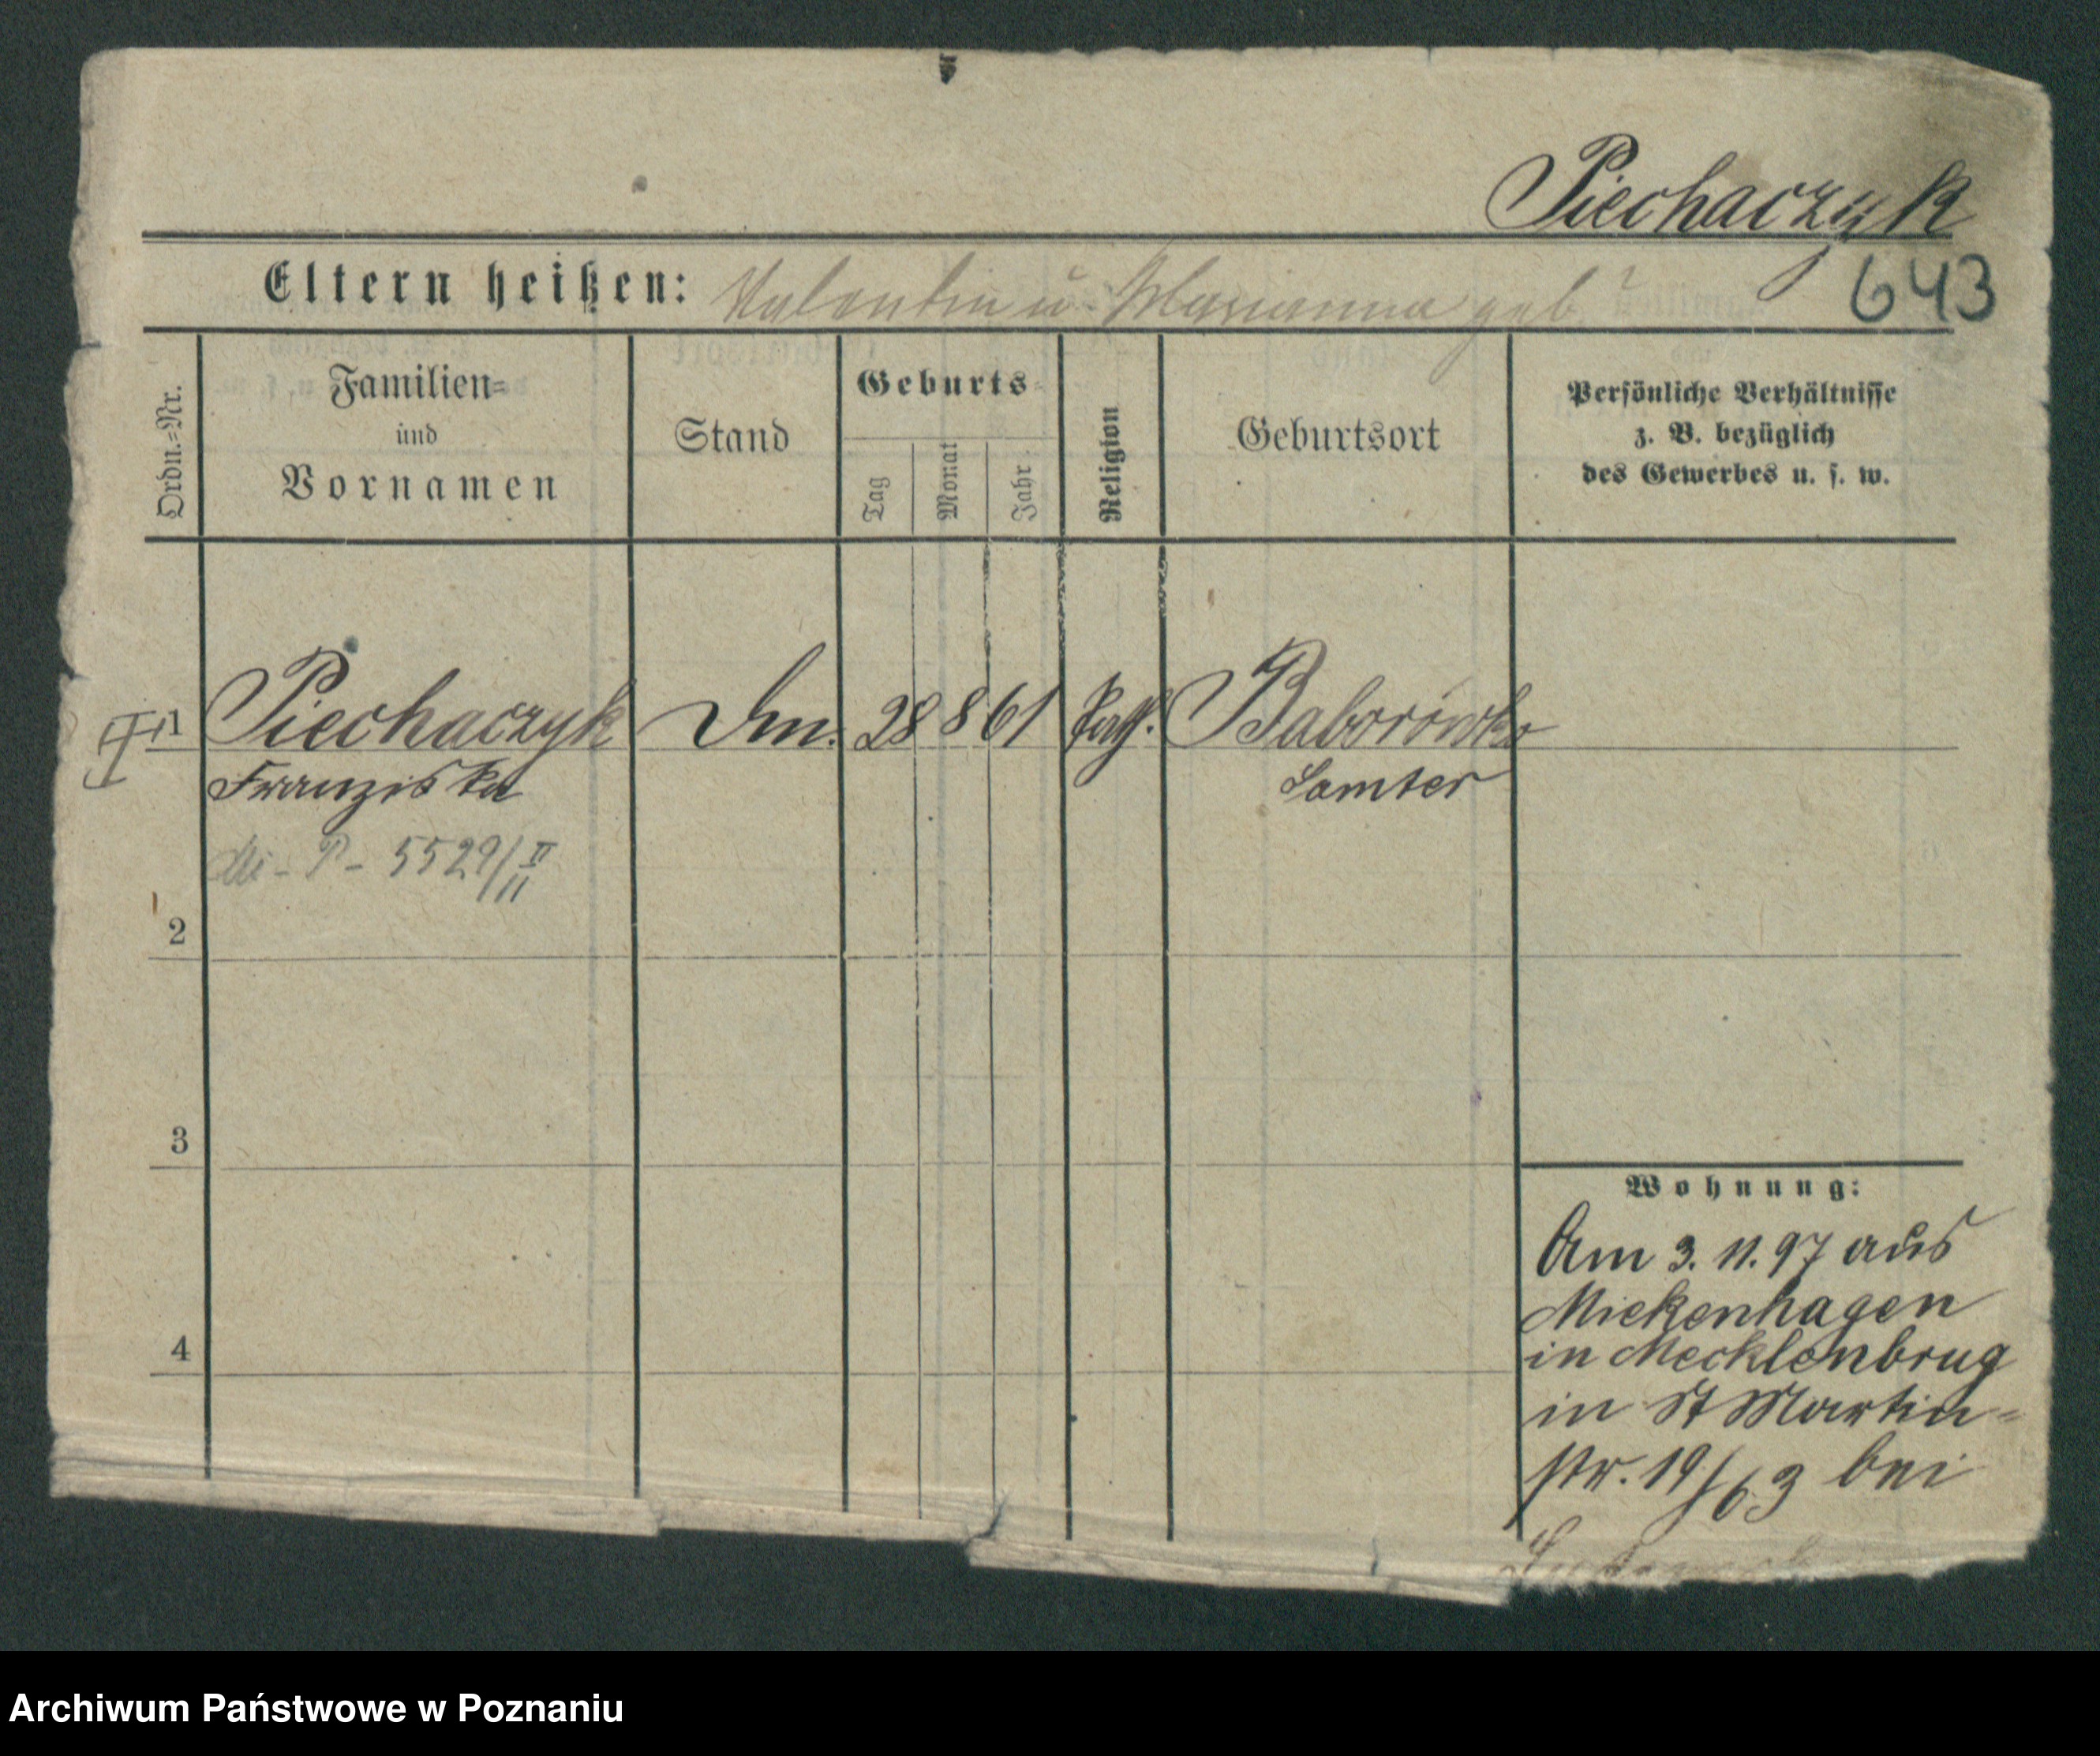 Piechaczyk
643
Eltern heißen: Valentin u. Marianna geb. ?
Ordn.=Nr.
Familien=
und
Vornamen
Stand
Geburts
Tag
Monat
Jahr
Religion
Geburtsort
Persönliche Verhältnisse
z. B. bezüglich
des Gewerbes u. s. w.
1 Piechaczyk 28 8 61 kath. Baborowko
Franziska Samter
P - 5529/II
11
2
3
4
Wohnung:
Am 3. 11. 97 aus
Miekenhagen
in Mecklenbrug
in St Martin=
str. 19/63 bei
Archiwum Państwowe w Poznaniu